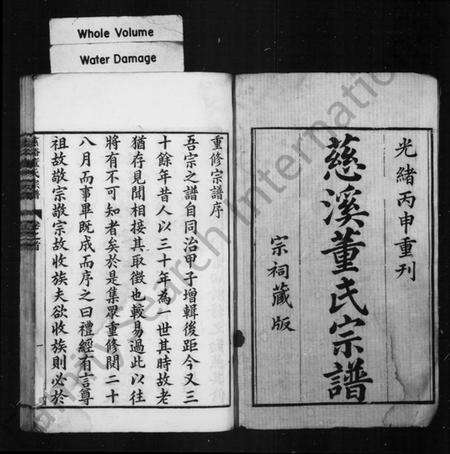 Whole Volume
Water Damage
光緒丙申重刊
慈溪董氏宗譜
宗祠藏版
重修宗譜序
吾宗之譜自同治甲子增輯後距今又三
十餘年昔人以三十年為一世其時故老
猶存見聞相接其取徵也較易過此以往
將有不可知者矣於是集眾重修閱二十
八月而事畢既成而序之曰禮經有言尊
祖故敬宗敬宗故收族夫欲收族則必於